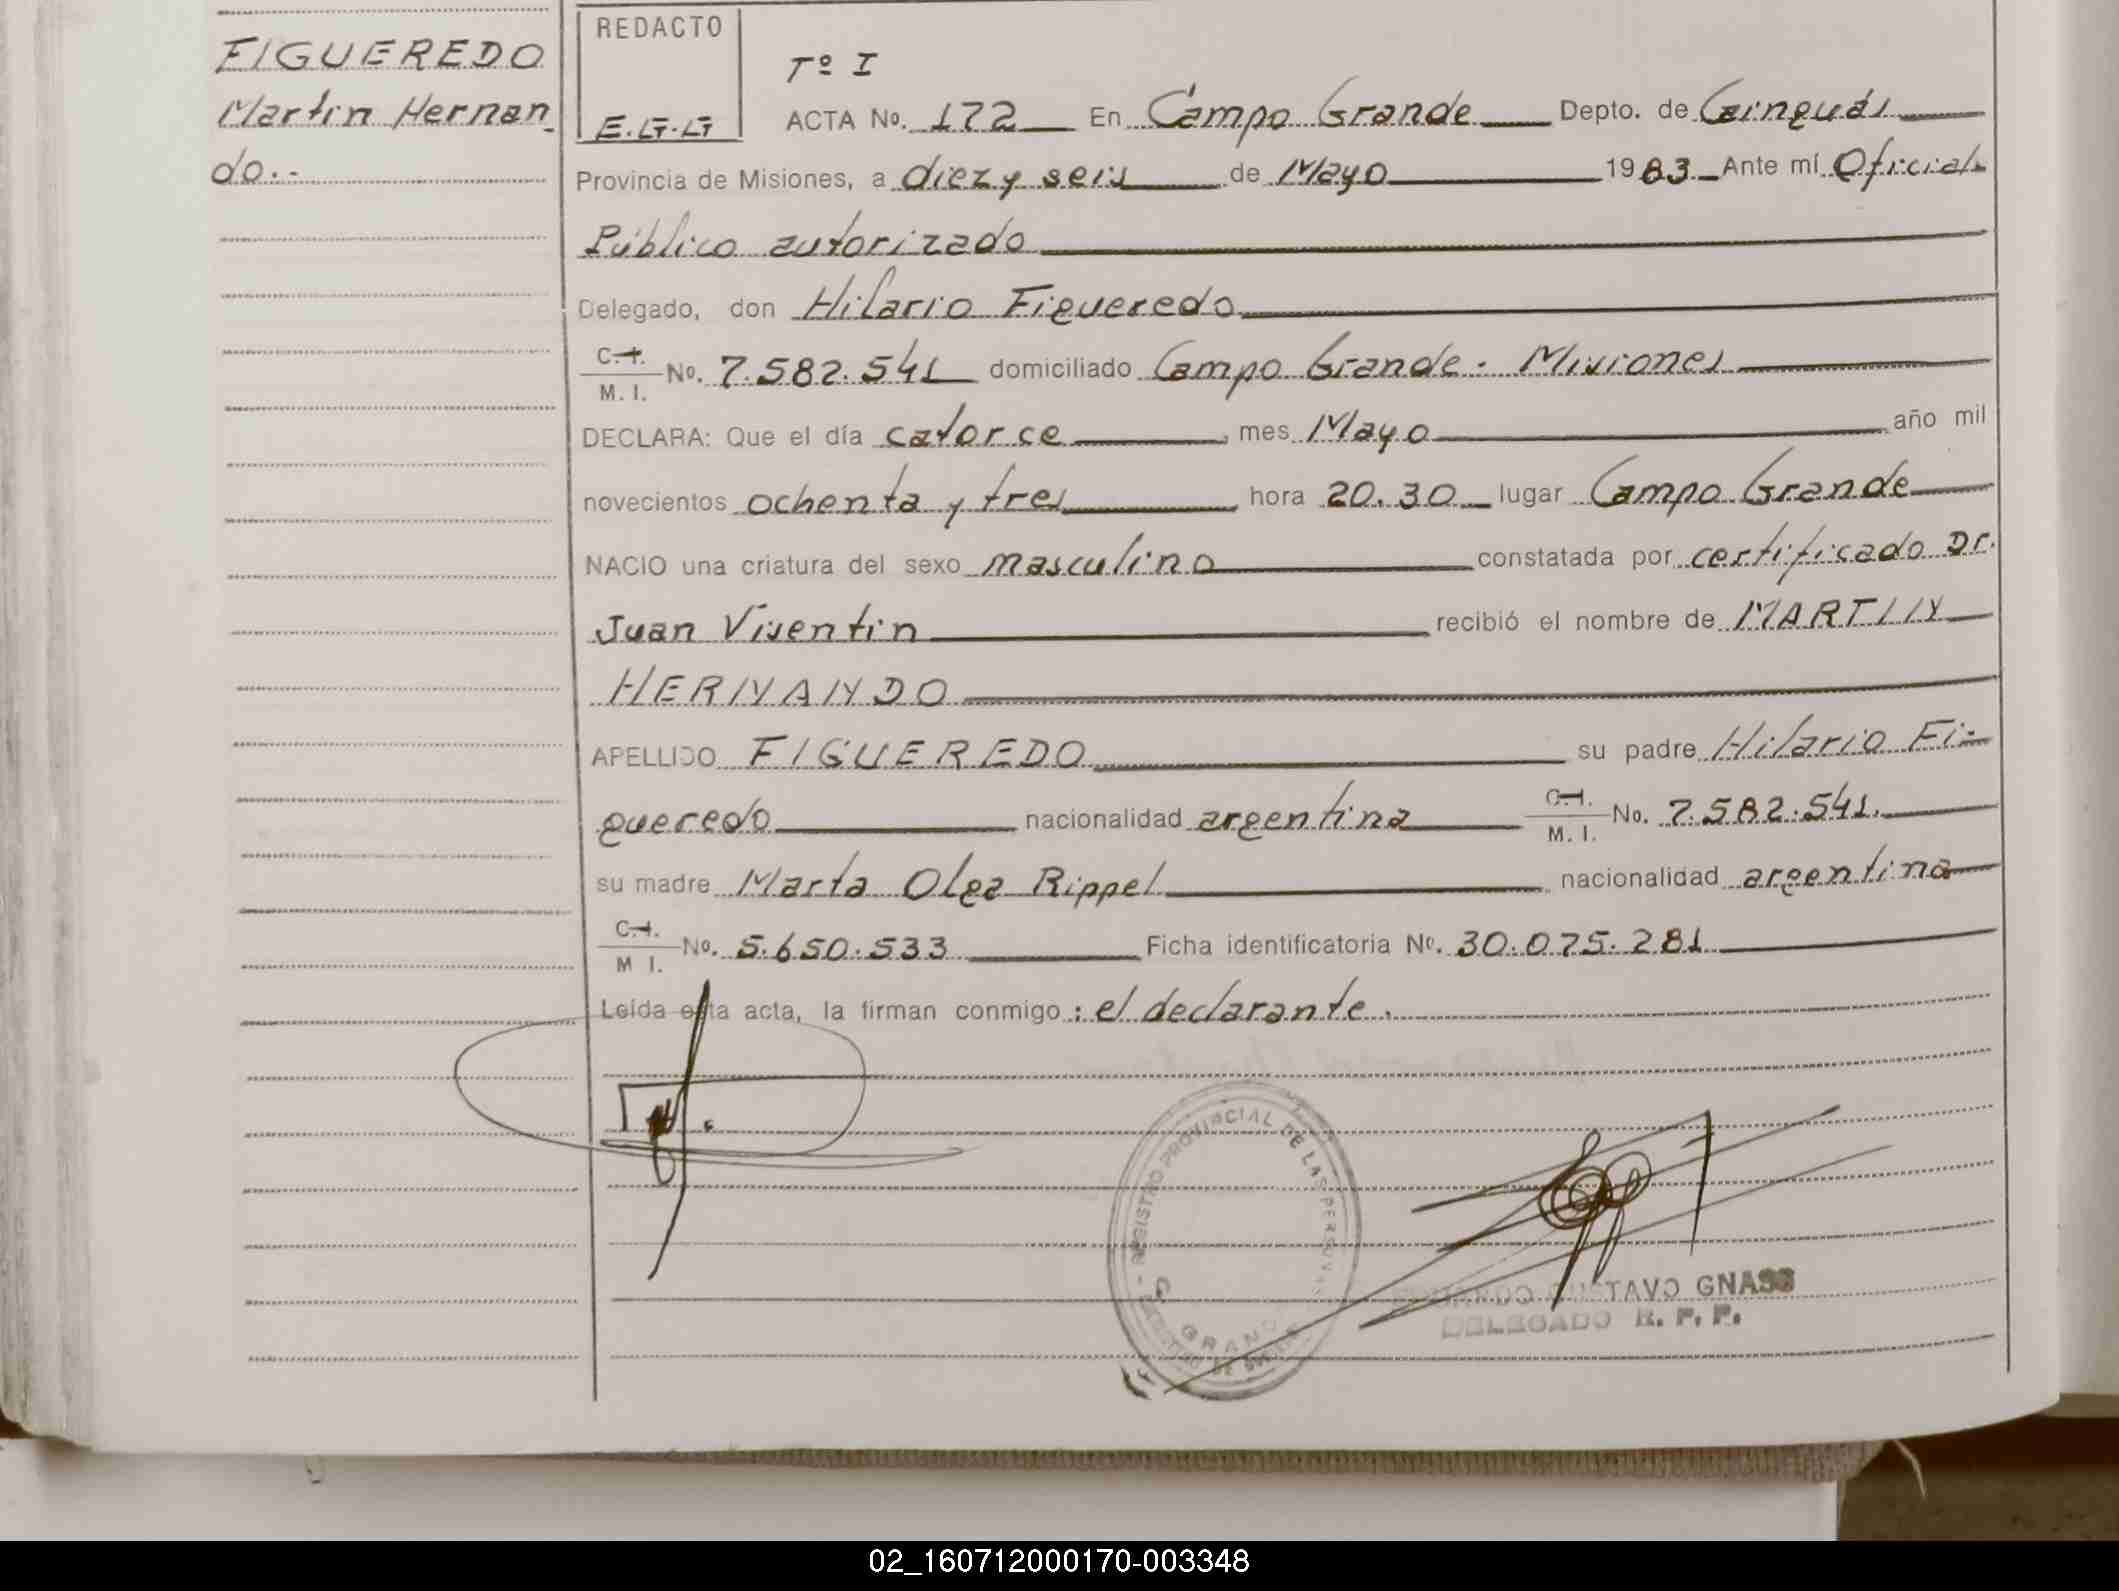 FIGUEREDO
Martín Hernan-
do.-
REDACTO
E.G.G
Tº I
ACTA No. 172 En Campo Grande Depto. de Cainguás
Provincia de Misiones, a diez y seis de Mayo 1983 Ante mí Oficial
Público autorizado
Delegado, don Hilario Figueredo
C.I.
M. I. No. 7.582.541 domiciliado Campo Grande - Misiones
DECLARA: Que el día catorce, mes Mayo año mil
novecientos ochenta y tres hora 20.30 lugar Campo Grande
NACIO una criatura del sexo masculino constatada por certificado Dr.
Juan Visentin recibió el nombre de MARTIN
HERNANDO
APELLIDO FIGUEREDO su padre Hilario Fi-
gueredo nacionalidad argentina C.I.
M. I. No. 7.582.541.
su madre Marta Olga Rippel nacionalidad argentina
C.I.
M I. No. 5.650.533 Ficha identificatoria Nº. 30.075.281
Leída esta acta, la firman conmigo: el declarante.
REGISTRO PROVINCIAL DE LAS PERSONAS
GUSTAVO GNASS
DELEGADO R. P. P.
02_160712000170-003348